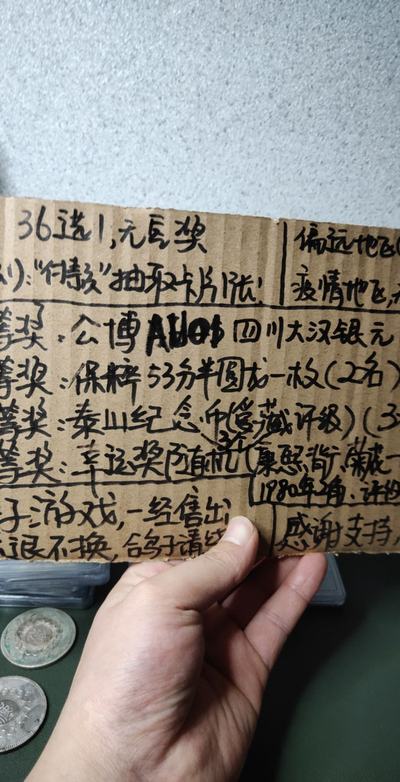 36选1,无巨奖
偏远地区
):"付款"抽取卡片1张!
疫情地区,
等奖:公博AU 四川大汉银元
等奖:保粹53分半圆龙一枚(2名)
等奖:泰山纪念币(爱藏评级)(3
等奖:幸运奖随机(康熙背
1980年2角:评
子游戏,一经售出
不退不换,合鸽子请绕
感谢支持,